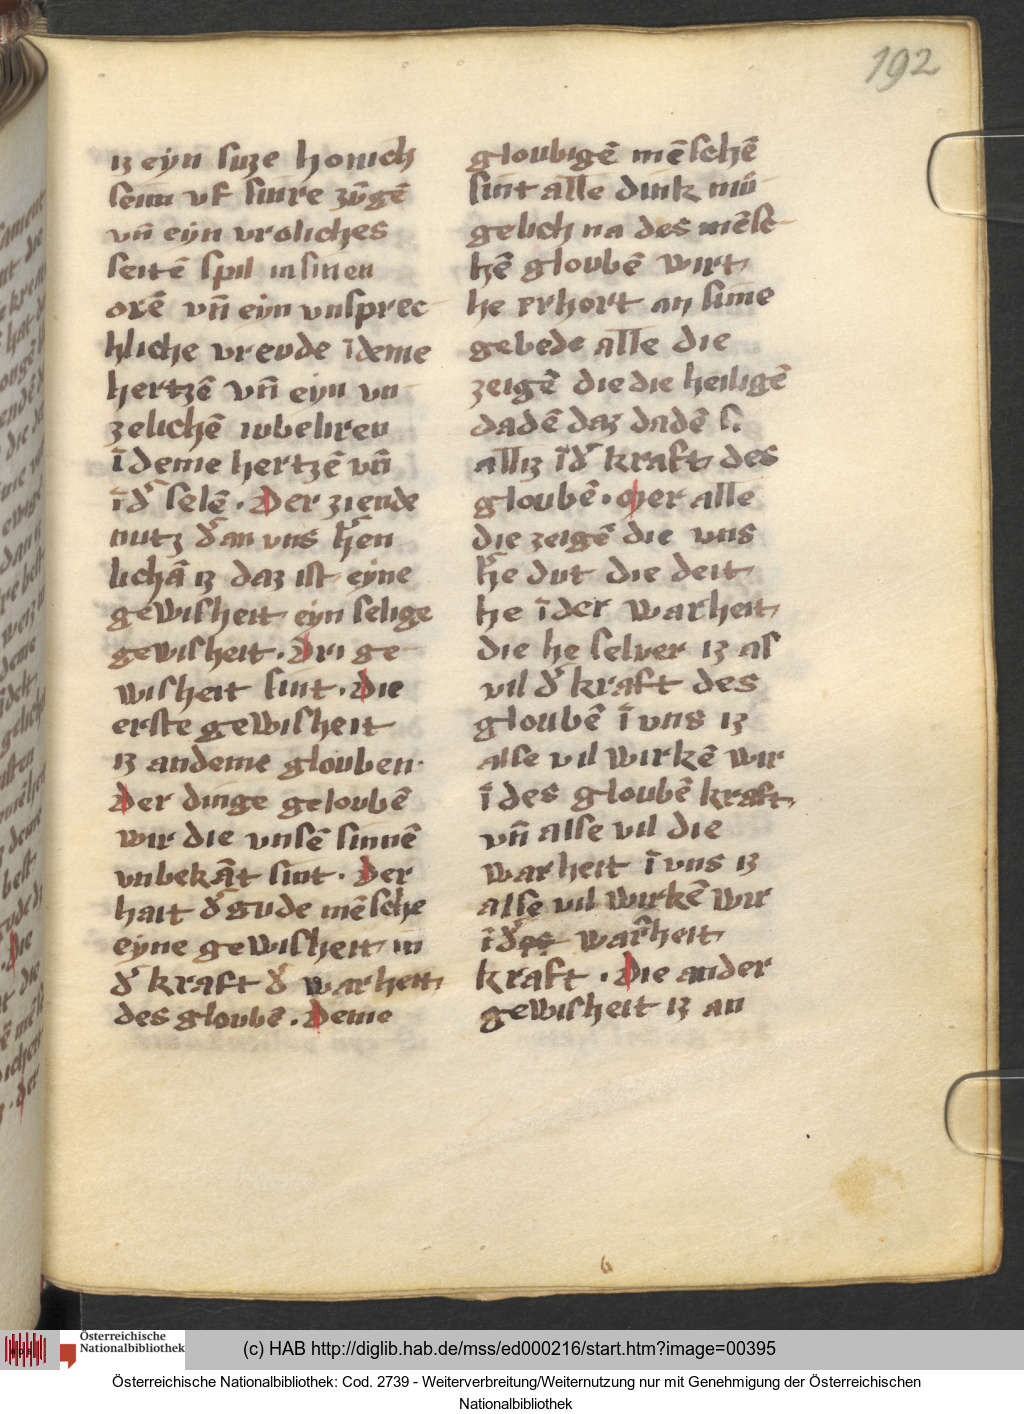 192
iz eyn suze honich
seim vf sinre zūgē
vn̄ eyn vroliches
seitē spil in sinen
orē vn̄ eyn vnsprec
hliche vreude ī deme
hertzē vn̄ eyn vn
zelichē iubeliren
ī deme hertzē vn̄
ī d͛ selē . Der ziende
nutz d͛ an vns h͛en
lichā iz daz ist eyne
gewisheit eyn selige
gewisheit . Dri ge
wisheit sint . Die
erste gewisheit
iz an deme glouben
Der dinge geloubē
wir die vnsē sinnē
vnbekāt sint . Der
hait d͛ gude mēsche
eyne gewisheit in
d͛ kraft d͛ warheit
des gloubē . Deme
gloubigē mēschē
sint alle dink mu
gelich na des mēsc
hē gloubē wirt
he erhort an sime
gebede alle die
zeigē die die heiligē
dadē daz dadē s.
alliz ī d͛ kraft des
gloubē . Mer alle
die zeigē die vns
h͛e dut die deit
he ī der warheit
die he selver iz as
vil d͛ kraft des
gloubē ī vns iz
alse vil wirkē wir
ī des gloubē kraft
vn̄ alse vil die
warheit ī vns iz
alse vil wirkē wir
ī d͛ warheit
kraft . Die ander
gewisheit iz an
Österreichische
Nationalbibliothek
(c) HAB http://diglib.hab.de/mss/ed000216/start.htm?image=00395
Österreichische Nationalbibliothek: Cod. 2739 - Weiterverbreitung/Weiternutzung nur mit Genehmigung der Österreichischen
Nationalbibliothek